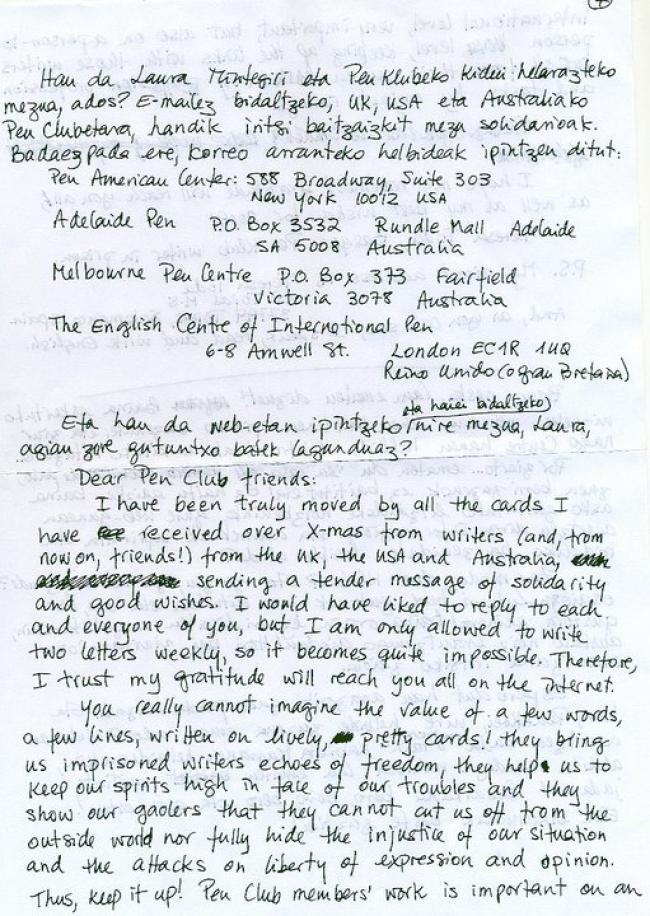 Hau da Laura Mintegiri eta Pen Klubeko kideei helarazteko
mezua, ados? E-mailez bidaltzeko, UK, USA eta Australiako
Pen Clubetara, handik iritsi baitzaizkit mezu solidarioak.
Badaezpada ere, korreo arranteko helbideak ipintzen ditut:
Pen American Center: 588 Broadway, Suite 303
New York 10012 USA
Adelaide Pen P.O. Box 3532 Rundle Mall Adelaide
SA 5008 Australia
Melbourne Pen Centre P.O. Box 373 Fairfield
Victoria 3078 Australia
The English Centre of International Pen
6-8 Amwell St. London EC1R 1UQ
Reino Unido (o Gran Bretaña)
eta haiei bidaltzeko)
Eta hau da web-etan ipintzeko nire mezua, Laura,
agian zure gutuntxo batek lagunduaz?
Dear Pen Club friends:
I have been truly moved by all the cards I
have received over X-mas from writers (and, from
now on, friends!) from the UK, the USA and Australia,
sending a tender message of solidarity
and good wishes. I would have liked to reply to each
and everyone of you, but I am only allowed to write
two letters weekly, so it becomes quite impossible. Therefore,
I trust my gratitude will reach you all on the internet.
You really cannot imagine the value of a few words,
a few lines, written on lively, pretty cards! they bring
us imprisoned writers echoes of freedom, they help us to
keep our spirits high in face of our troubles and they
show our gaolers that they cannot cut us off from the
outside world nor fully hide the injustice of our situation
and the attacks on liberty of expression and opinion.
Thus, keep it up! Pen Club members' work is important on an